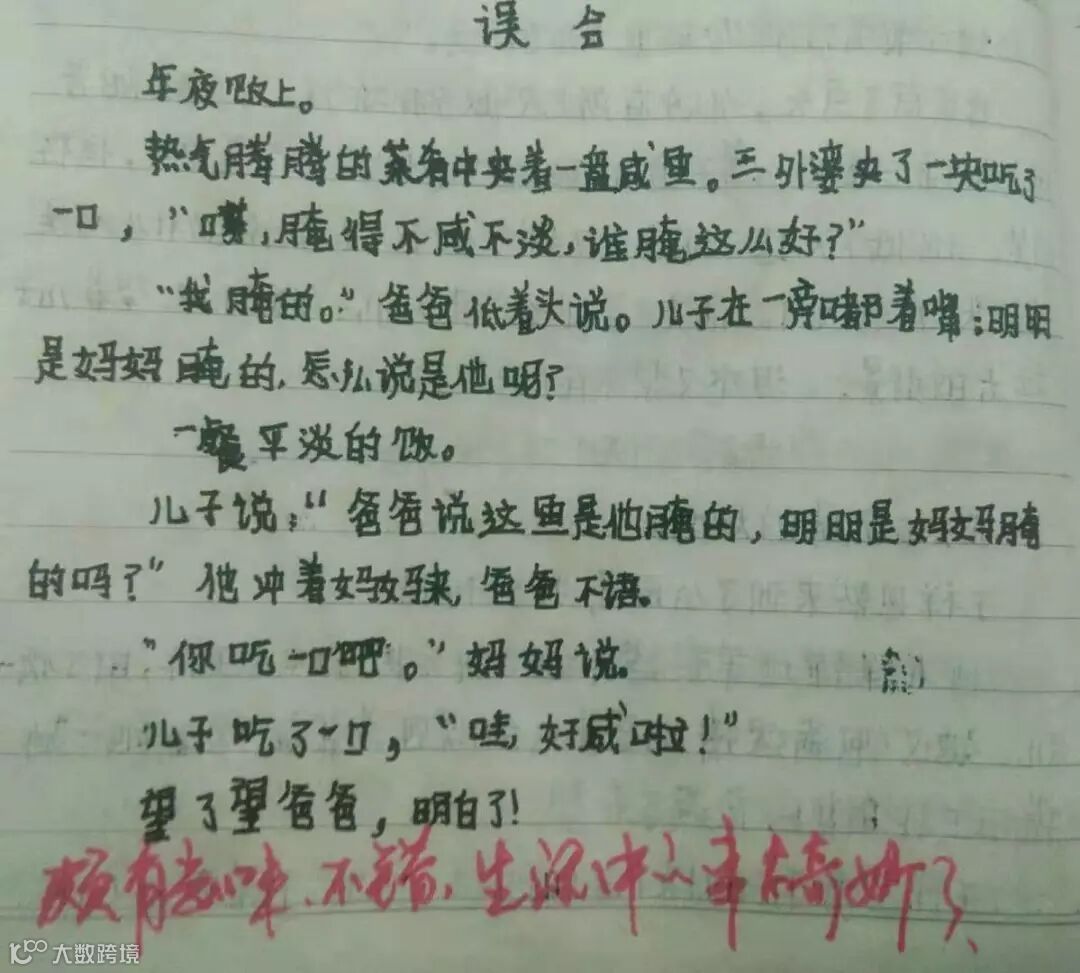 误会
年夜饭上。
热气腾腾的菜肴中夹着一盘咸鱼。三外婆夹了一块吃了
一口，“嘿，腌得不咸不淡，谁腌这么好？”
“我腌的。”爸爸低着头说。儿子在一旁嘟着嘴：明明
是妈妈腌的，怎么说是他呢？
一餐平淡的饭。
儿子说：“爸爸说这鱼是他腌的，明明是妈妈腌
的吗？”他冲着妈妈来，爸爸不语。
“你吃一口吧。”妈妈说。
儿子吃了一口，“哇，好咸啦！”
望了望爸爸，明白了！
颇有趣味、不错、生活中的事太奇妙了、
大数跨境